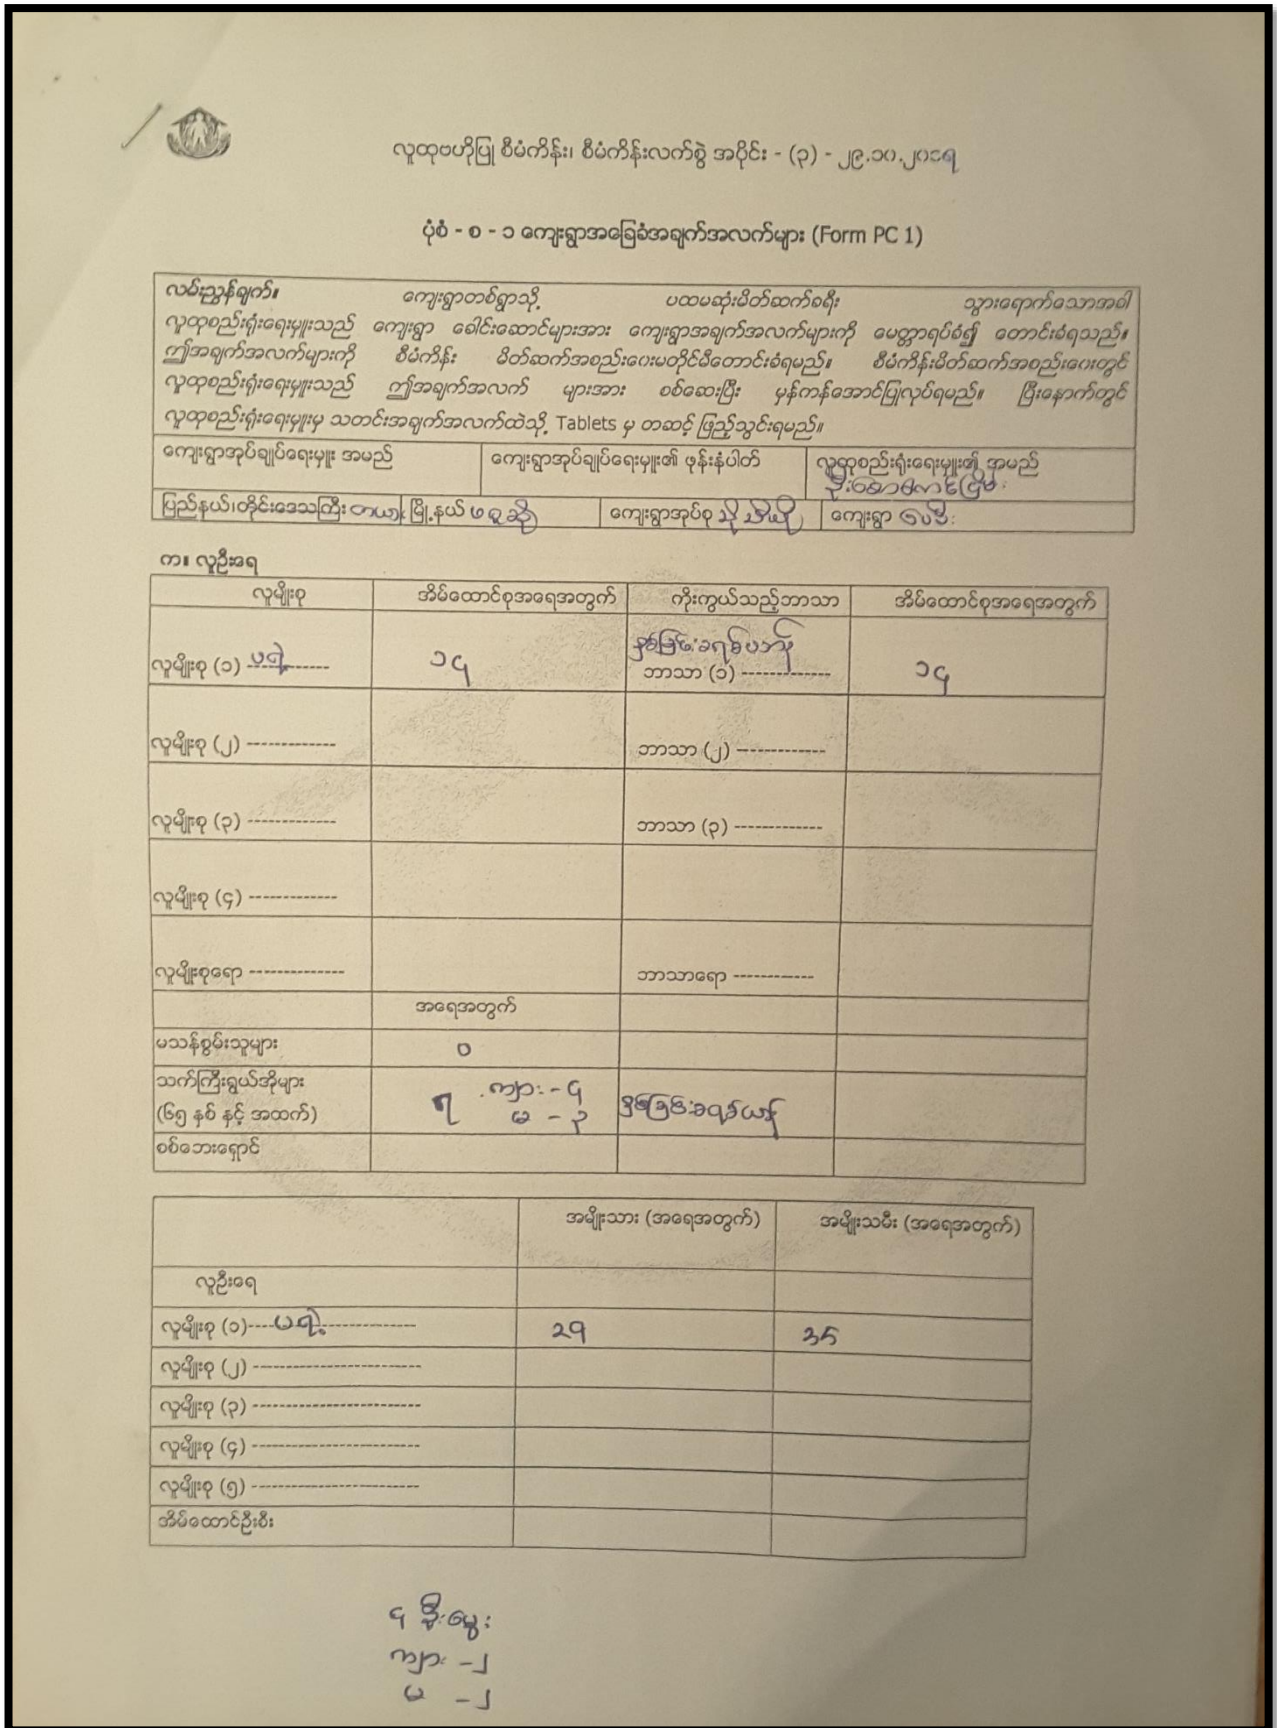 လူထုဗဟိုပြု စီမံကိန်း၊ စီမံကိန်းလက်စွဲ အပိုင်း - (၃) - ၂၉.၁၀.၂၀၁၅
ပုံစံ - စ - ၁ ကျေးရွာအခြေခံအချက်အလက်များ (Form PC 1)
လမ်းညွှန်ချက်။ ကျေးရွာတစ်ရွာသို့ ပထမဆုံးမိတ်ဆက်ခရီး သွားရောက်သောအခါ
လူထုစည်းရုံးရေးမှူးသည် ကျေးရွာ ခေါင်းဆောင်များအား ကျေးရွာအချက်အလက်များကို မေတ္တာရပ်ခံ၍ တောင်းခံရသည်။
ဤအချက်အလက်များကို စီမံကိန်း မိတ်ဆက်အစည်းဝေးမတိုင်မီတောင်းခံရမည်။ စီမံကိန်းမိတ်ဆက်အစည်းဝေးတွင်
လူထုစည်းရုံးရေးမှူးသည် ဤအချက်အလက် များအား စစ်ဆေးပြီး မှန်ကန်အောင်ပြုလုပ်ရမည်။ ပြီးနောက်တွင်
လူထုစည်းရုံးရေးမှူးမှ သတင်းအချက်အလက်ထဲသို့ Tablets မှ တဆင့် ဖြည့်သွင်းရမည်။
ကျေးရွာအုပ်ချုပ်ရေးမှူး အမည် ကျေးရွာအုပ်ချုပ်ရေးမှူး၏ ဖုန်းနံပါတ် လူထုစည်းရုံးရေးမှူး၏ အမည်
ပြည်နယ်၊တိုင်းဒေသကြီး ကယား မြို့နယ် ဖရူဆို ကျေးရွာအုပ်စု ကျေးရွာ
က။ လူဦးရေ
လူမျိုးစု အိမ်ထောင်စုအရေအတွက် ကိုးကွယ်သည့်ဘာသာ အိမ်ထောင်စုအရေအတွက်
နှစ်ခြင်းခရစ်ယာန်
လူမျိုးစု (၁) ကယား ၁၄ ဘာသာ (၁) ------------- ၁၄
လူမျိုးစု (၂) ------------- ဘာသာ (၂) -------------
လူမျိုးစု (၃) ------------- ဘာသာ (၃) -------------
လူမျိုးစု (၄) -------------
လူမျိုးစုရော -------------- ဘာသာရော ------------
အရေအတွက်
မသန်စွမ်းသူများ ၀
သက်ကြီးရွယ်အိုများ ၇ ကျား - ၄ နှစ်ခြင်းခရစ်ယာန်
(၆၅ နှစ် နှင့် အထက်) မ - ၃
စစ်ဘေးရှောင်
အမျိုးသား (အရေအတွက်) အမျိုးသမီး (အရေအတွက်)
လူဦးရေ
လူမျိုးစု (၁) 29 35
လူမျိုးစု (၂) -------------------------
လူမျိုးစု (၃) -------------------------
လူမျိုးစု (၄) -------------------------
လူမျိုးစု (၅) -------------------------
အိမ်ထောင်ဦးစီး
၄ ဦးမွေး
ကျား - ၂
မ - ၂